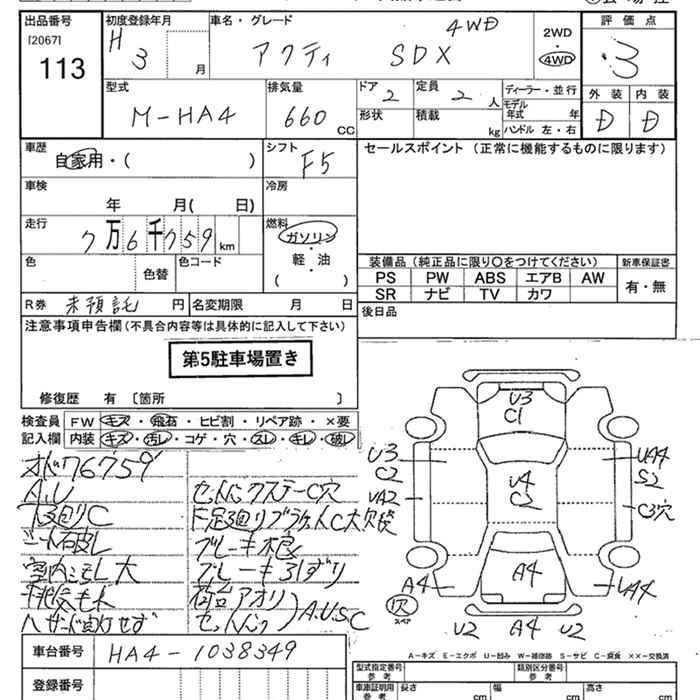 出品番号
[2067]
113
初度登録年月
H 3 月
車名・グレード
アクティ SDX 4WD
2WD
4WD
評価点
3
外装 内装
D D
型式
M-HA4
排気量
660 CC
ドア 2
形状
定員 2 人
積載 kg
ディーラー・並行
モデル年式 年
ハンドル 左・右
車歴
自家用・( )
シフト
F5
セールスポイント (正常に機能するものに限ります)
車検
年 月( 日)
冷房
走行
7万6千759km
燃料
ガソリン
軽・油
( )
色
色替
色コード
装備品(純正品に限り○をつけてください)
新車保証書
PS PW ABS エアB AW
SR ナビ TV カワ
有・無
R券 未預託 円
名変期限 月 日
後日品
注意事項申告欄(不具合内容等は具体的に記入して下さい)
第5駐車場置き
修復歴 有 〔箇所 〕
検査員記入欄
FW キズ・飛石・ヒビ割・リペア跡・×要
内装 キズ・汚レ・コゲ・穴・スレ・キレ・破レ
メーター76759
A.U
下回りC
シート破レ
室内ヨゴレ大
排気モレ
ハザード点灯せず
セットバックステーC穴
F足回リブラケットC大欠
ブレーキ不良
ブレーキ引ずり
荷台アオリ
セットバック
A.U.S.C
U3
C1
U3
C2
UA2
A4
U4
C2
A4
UA4
S2
C3穴
UA4
欠
スペア
U2 A4 U2
A-キズ E-エクボ U-凹み W-補修跡 S-サビ C-腐食 ××-交換済
車台番号 HA4-1038349
登録番号
型式指定番号
参考
類別区分番号
参考
車庫証明用
参考
長さ cm
幅 cm
高さ cm